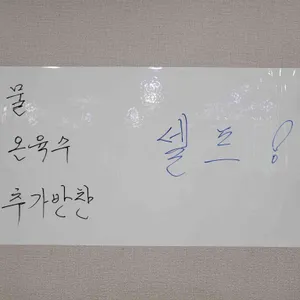 물
온육수
추가반찬
셀프!